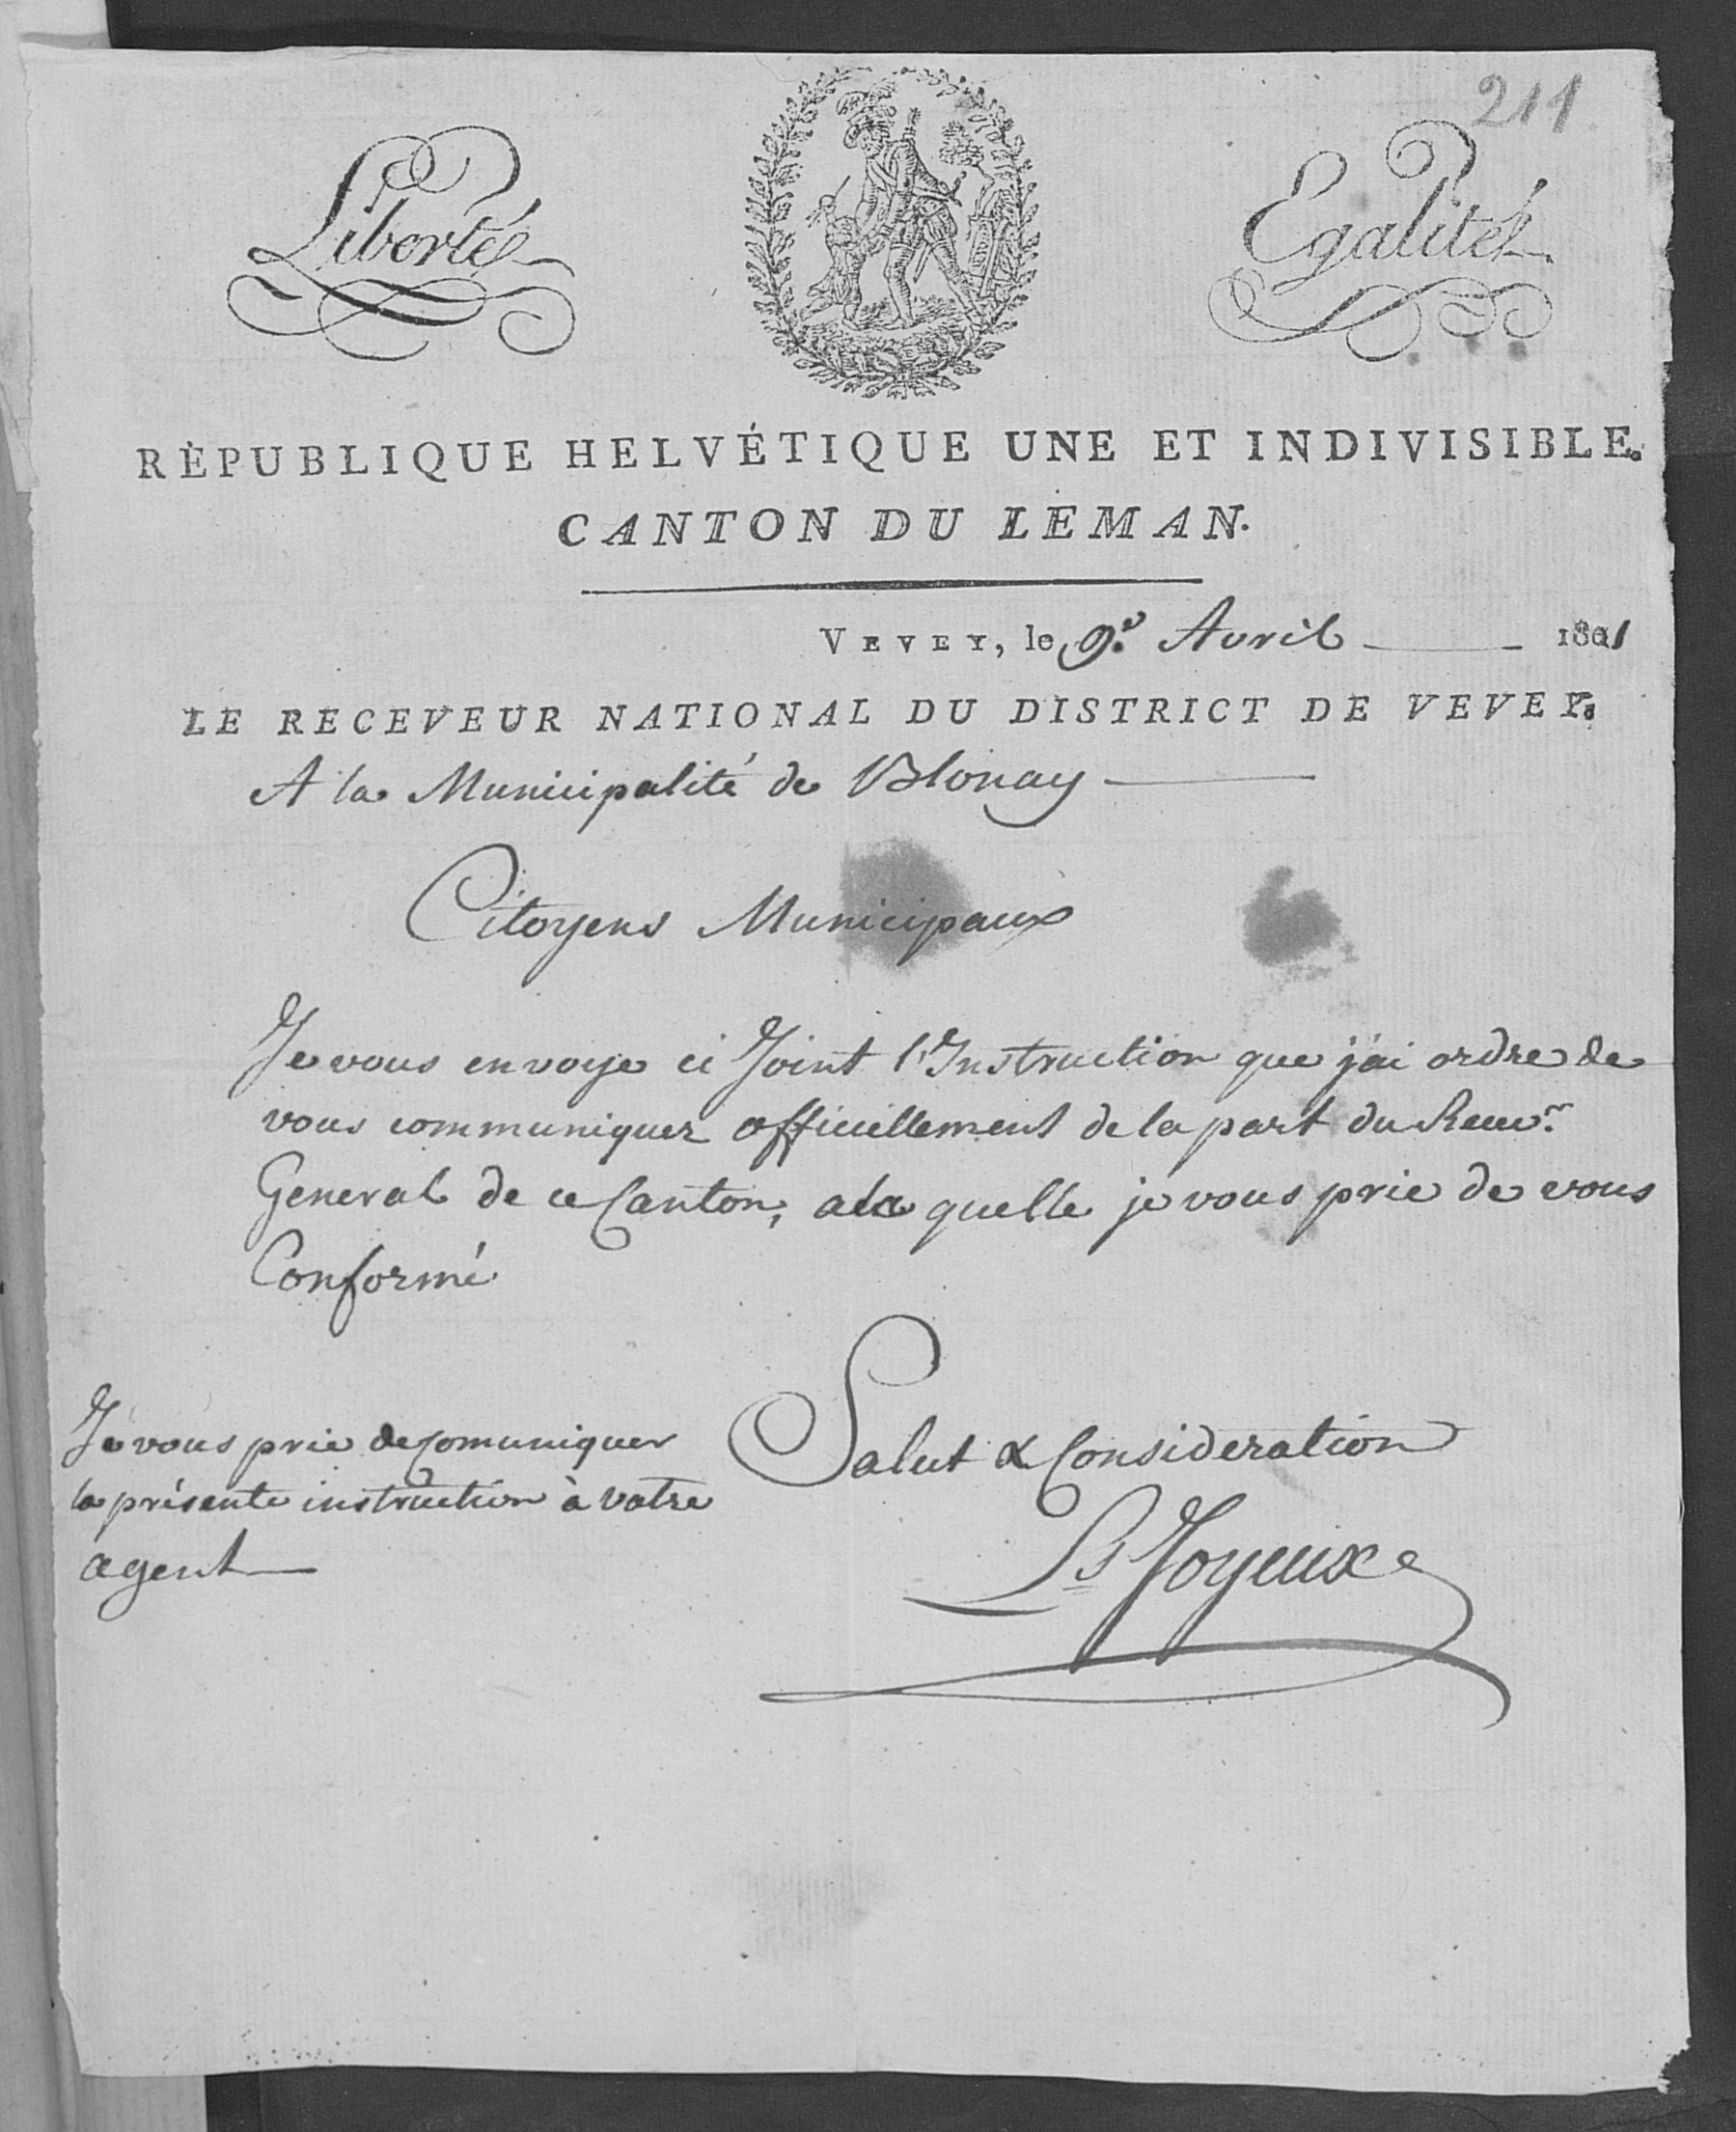 211
Liberté
Egalité
RÉPUBLIQUE HELVÉTIQUE UNE ET INDIVISIBLE.
CANTON DU LEMAN.
VEVEY, le 9.e Avril 1801
LE RECEVEUR NATIONAL DU DISTRICT DE VEVEY.
A la Municipalité de Blonay
Citoyens Municipaux
Je vous envoye ci Joint l'Instruction que j'ai ordre de
vous communiquer officiellement de la part du Recev.r
General de ce Canton, a la quelle je vous prie de vous
Conformé
Je vous prie de comuniquer
la présente instruction à votre
agent
Salut & Consideration
Ls Joyeux